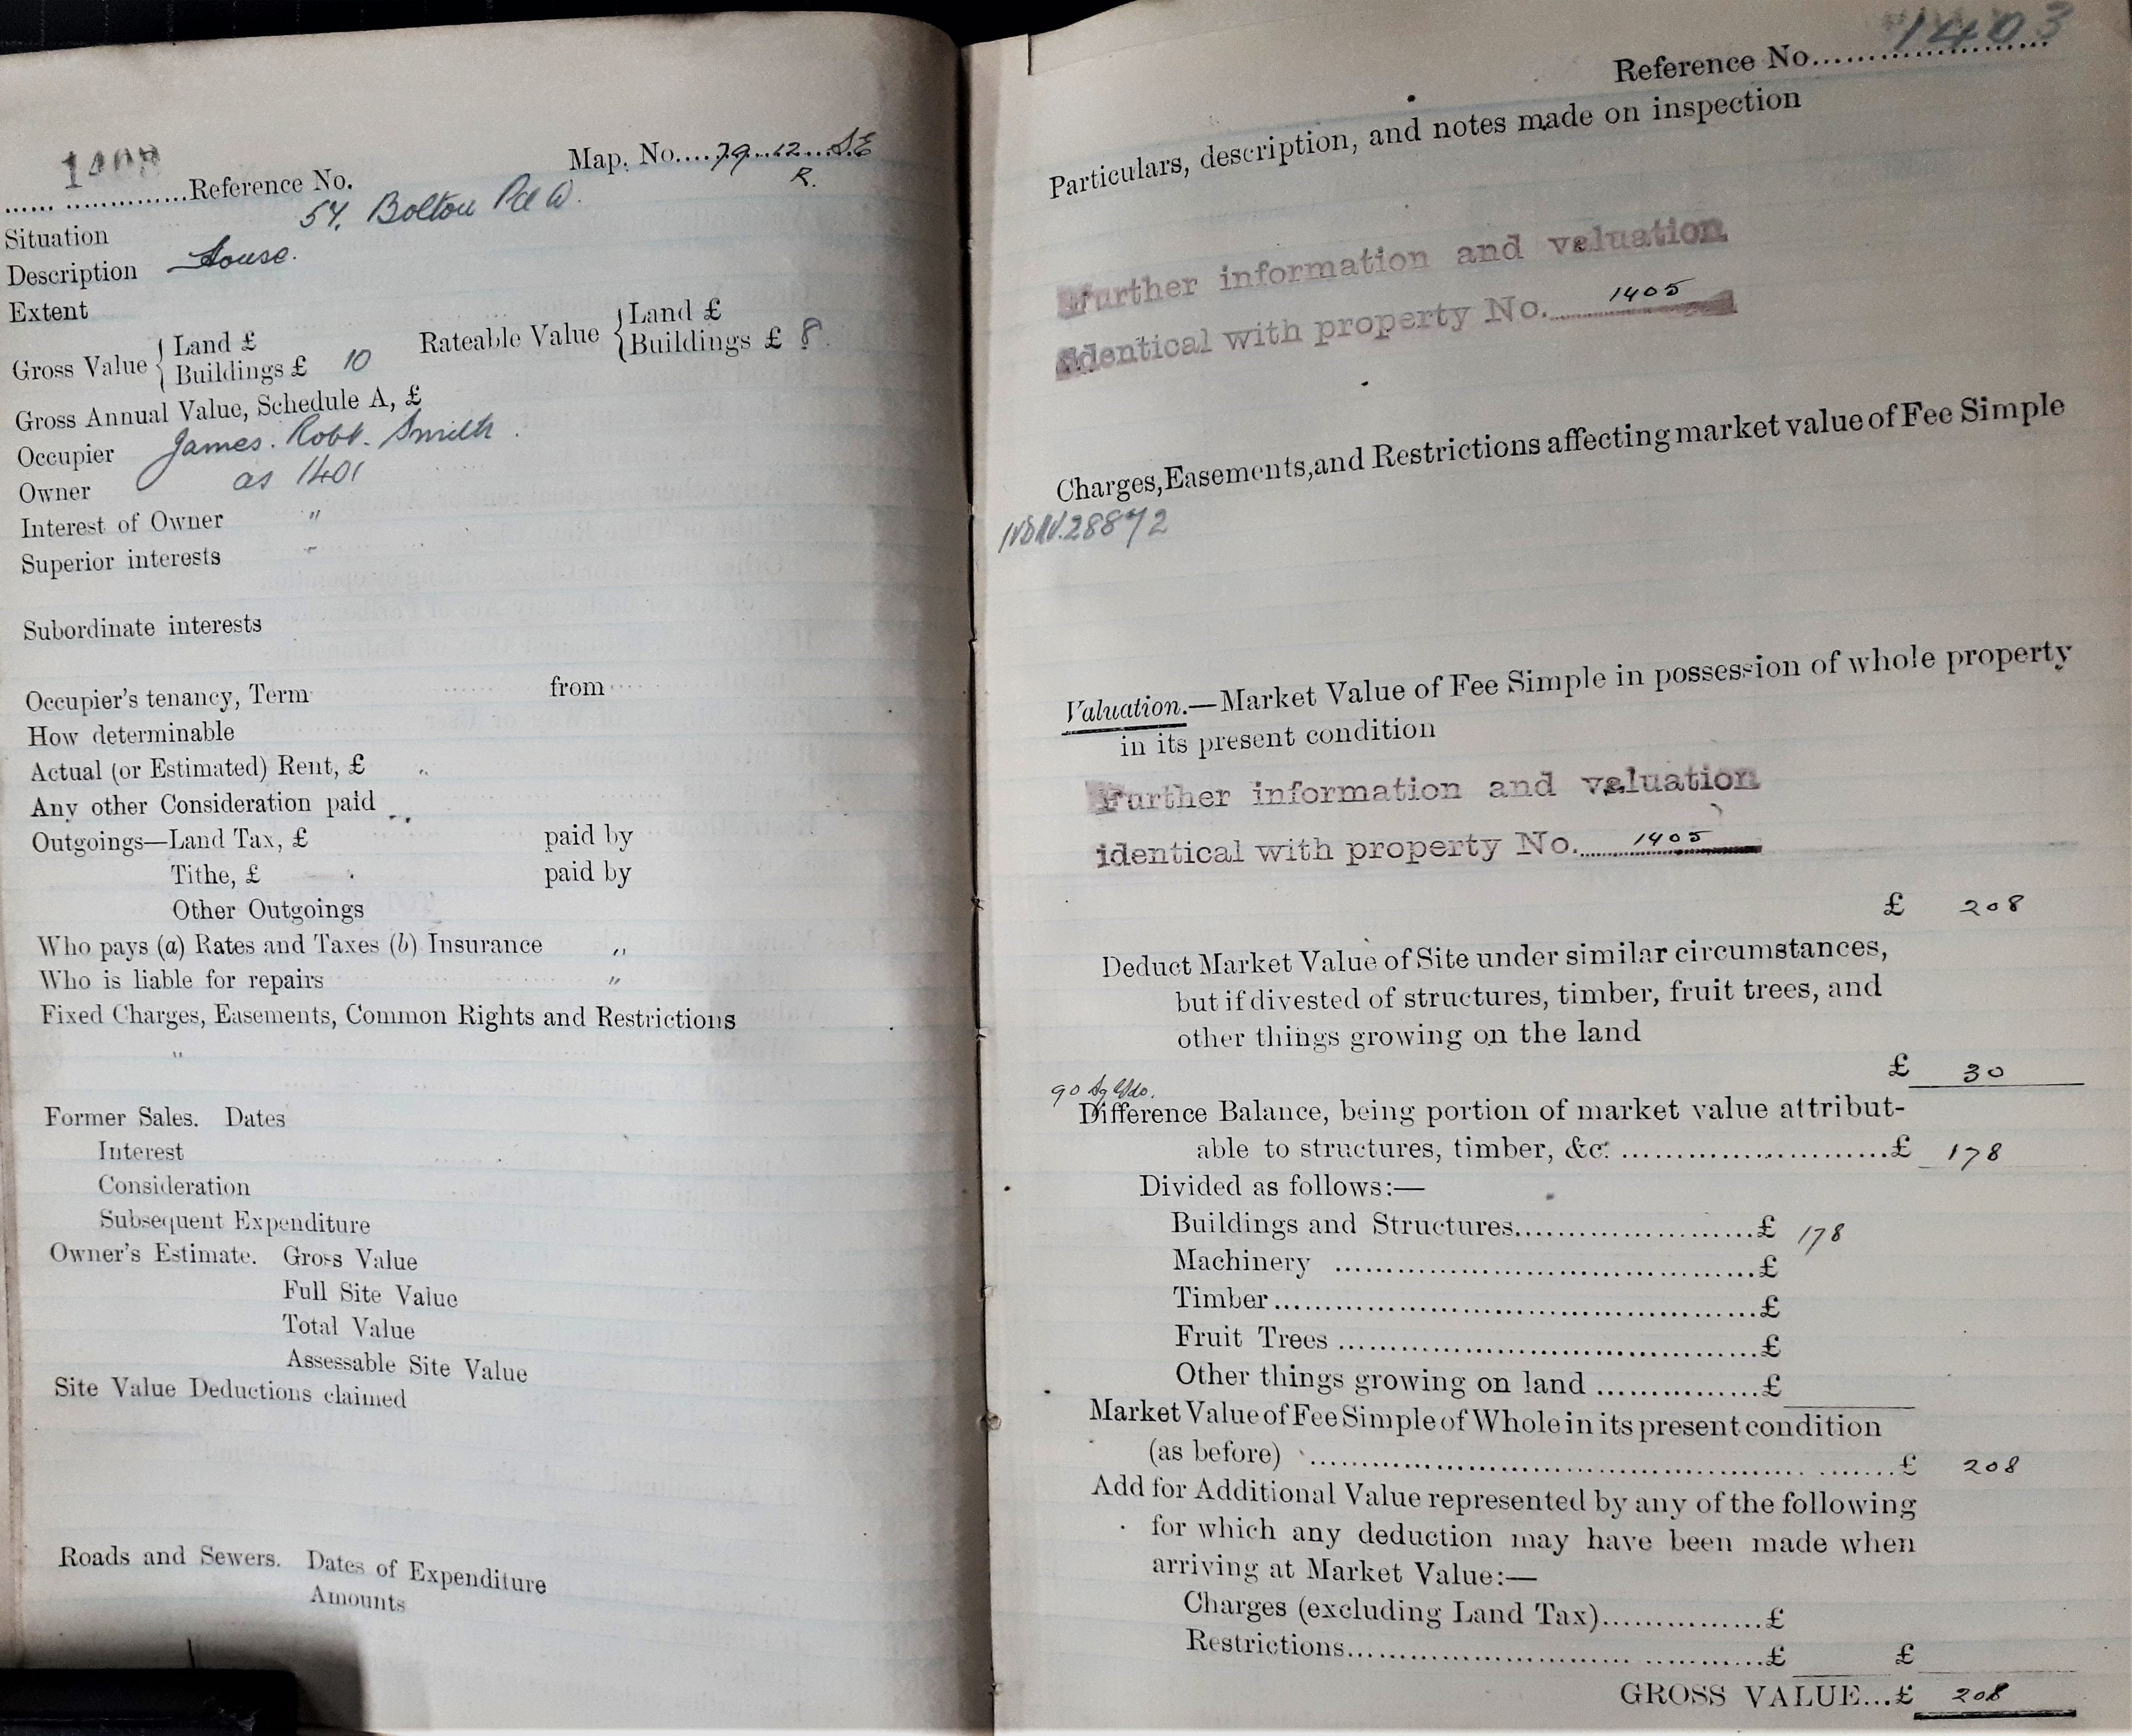 Reference No.
Map. No....79..12...S.E
R.
Situation 57, Bolton Rd W.
Description House.
Extent
Gross Value { Land £
Buildings £ 10
Rateable Value { Land £
Buildings £ 8.
Gross Annual Value, Schedule A, £
Occupier James. Robt. Smith.
Owner as 1401
Interest of Owner "
Superior interests "
Subordinate interests
Occupier's tenancy, Term from
How determinable
Actual (or Estimated) Rent, £ "
Any other Consideration paid "
Outgoings—Land Tax, £ paid by
Tithe, £ paid by
Other Outgoings
Who pays (a) Rates and Taxes (b) Insurance "
Who is liable for repairs "
Fixed Charges, Easements, Common Rights and Restrictions
"
Former Sales. Dates
Interest
Consideration
Subsequent Expenditure
Owner's Estimate. Gross Value
Full Site Value
Total Value
Assessable Site Value
Site Value Deductions claimed
Roads and Sewers. Dates of Expenditure
Amounts
Reference No. 1403
Particulars, description, and notes made on inspection
Further information and valuation
identical with property No. 1405
Charges, Easements, and Restrictions affecting market value of Fee Simple
28872
Valuation.—Market Value of Fee Simple in possession of whole property
in its present condition
Further information and valuation
identical with property No. 1405
£ 208
Deduct Market Value of Site under similar circumstances,
but if divested of structures, timber, fruit trees, and
other things growing on the land
£ 30
90 Sq Yds.
Difference Balance, being portion of market value attribut-
able to structures, timber, &c. £ 178
Divided as follows:—
Buildings and Structures £ 178
Machinery £
Timber £
Fruit Trees £
Other things growing on land £
Market Value of Fee Simple of Whole in its present condition
(as before) £ 208
Add for Additional Value represented by any of the following
for which any deduction may have been made when
arriving at Market Value:—
Charges (excluding Land Tax) £
Restrictions £ £
GROSS VALUE...£ 208